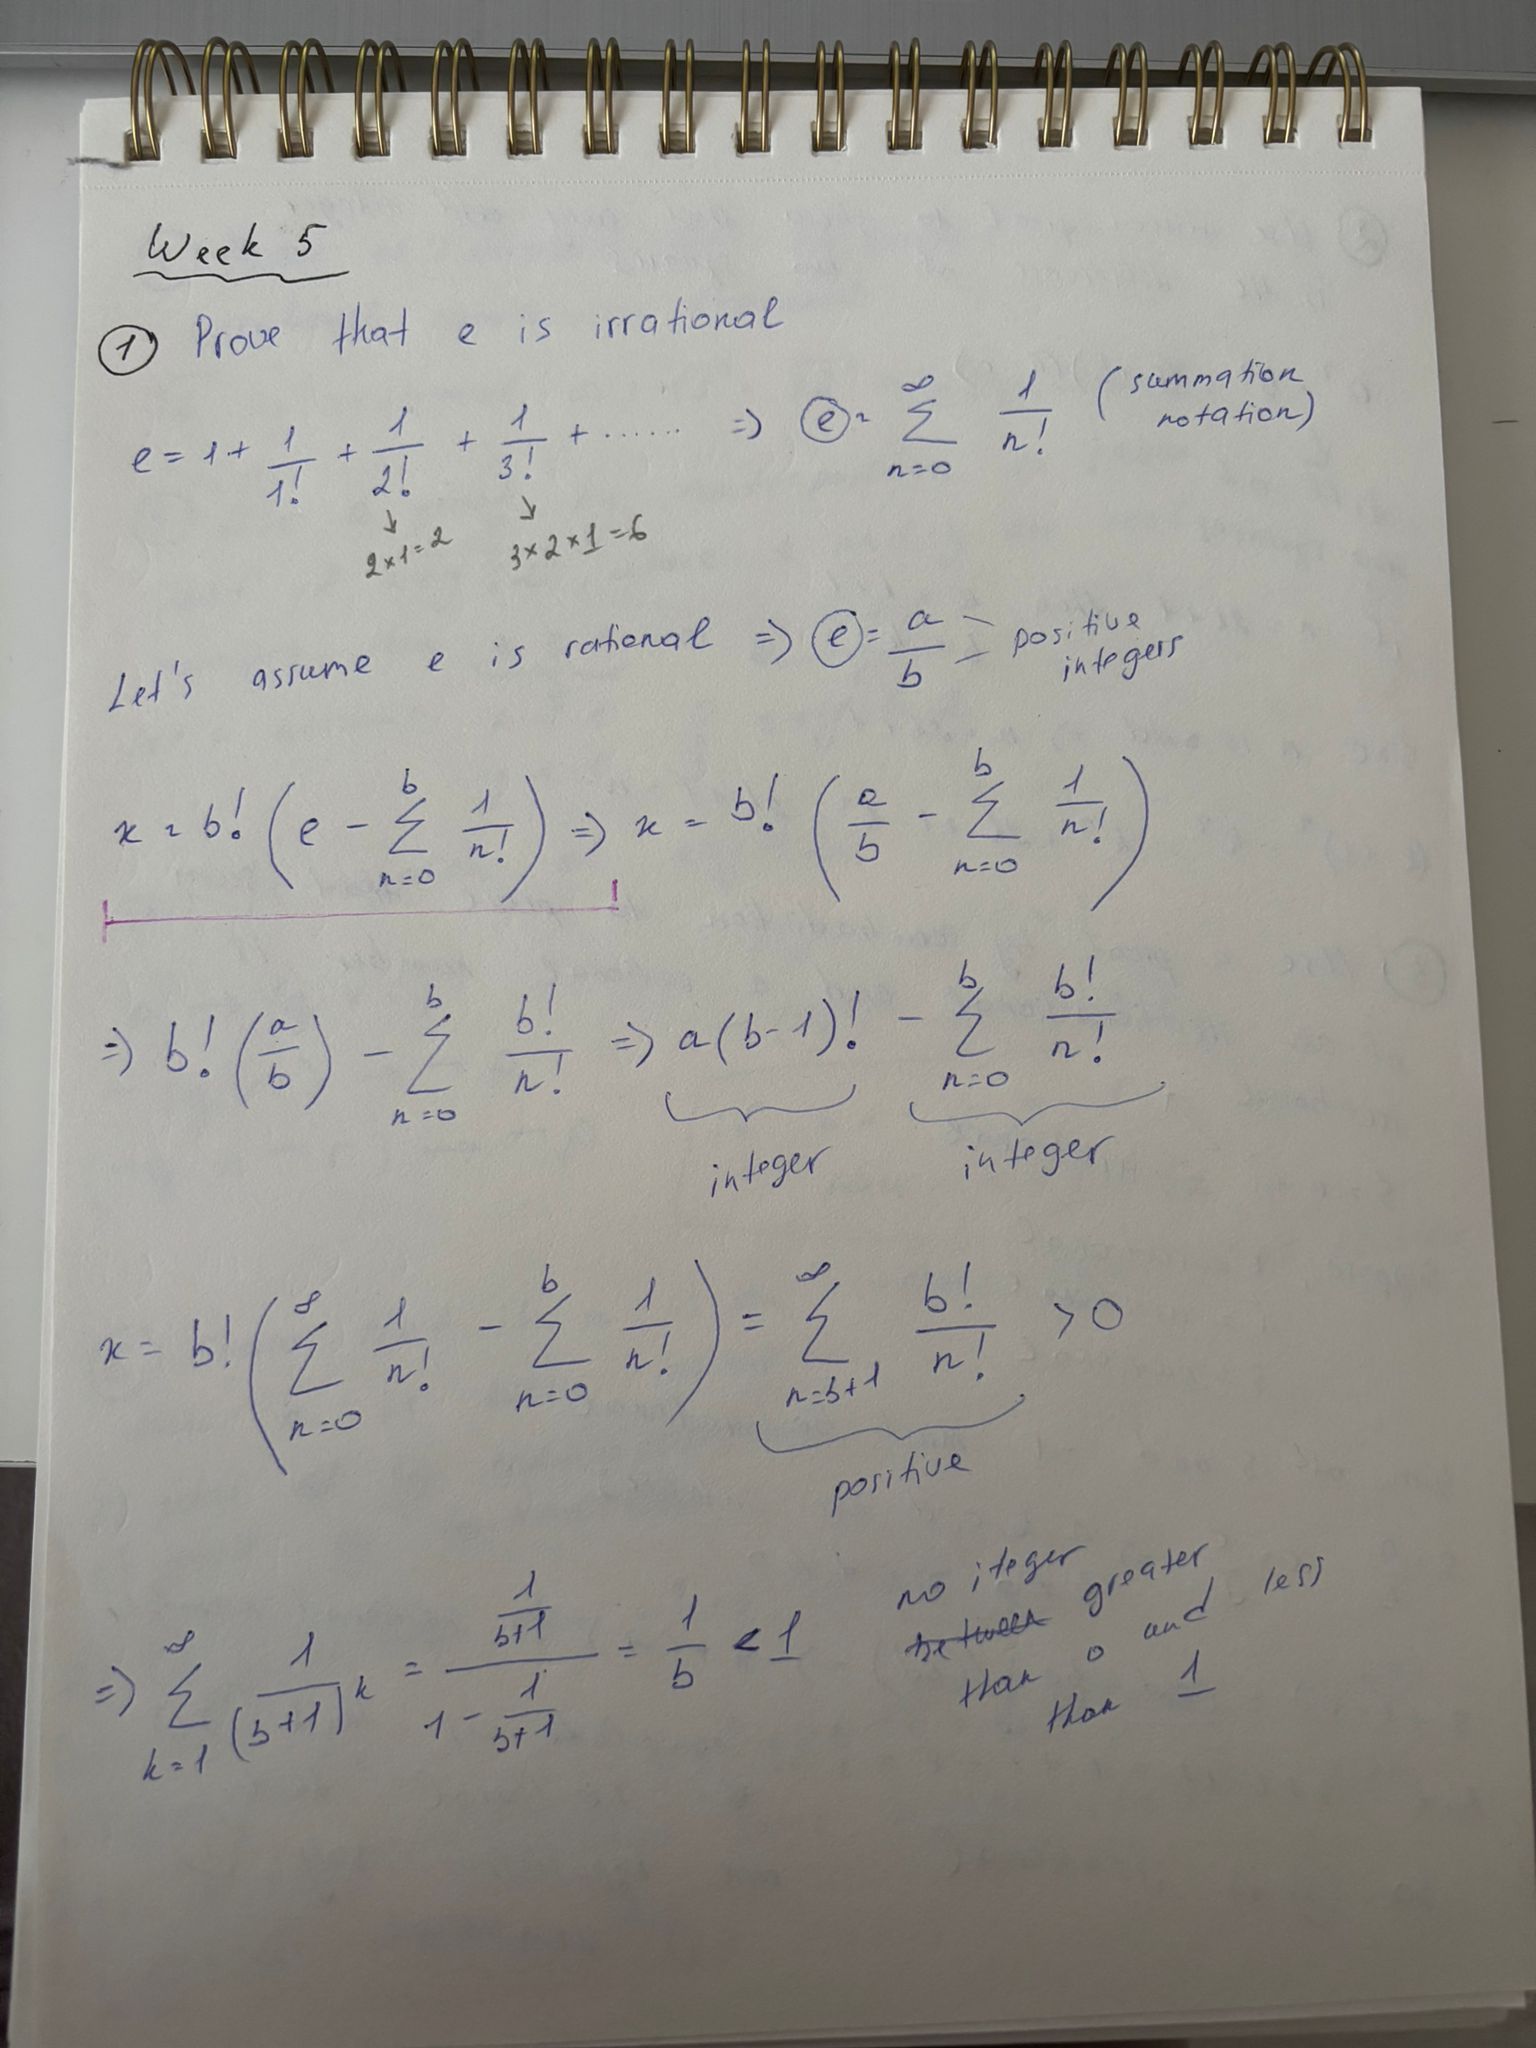 Week 5
① Prove that e is irrational
e = 1 + 1/1! + 1/2! + 1/3! + ...... ⇒ e = ∞∑n=0 1/n! (summation notation)
↓ 2×1=2 ↓ 3×2×1=6
Let's assume e is rational ⇒ e = a/b positive integers
x = b! (e − b∑n=0 1/n!) ⇒ x = b! (a/b − b∑n=0 1/n!)
⇒ b! (a/b) − b∑n=0 b!/n! ⇒ a(b-1)! − b∑n=0 b!/n!
integer integer
x = b! (∞∑n=0 1/n! − b∑n=0 1/n!) = ∞∑n=b+1 b!/n! > 0
positive
⇒ ∞∑k=1 1/(b+1)^k = (1/(b+1))/(1 − 1/(b+1)) = 1/b < 1
no iteger
between greater
than 0 and less
than 1